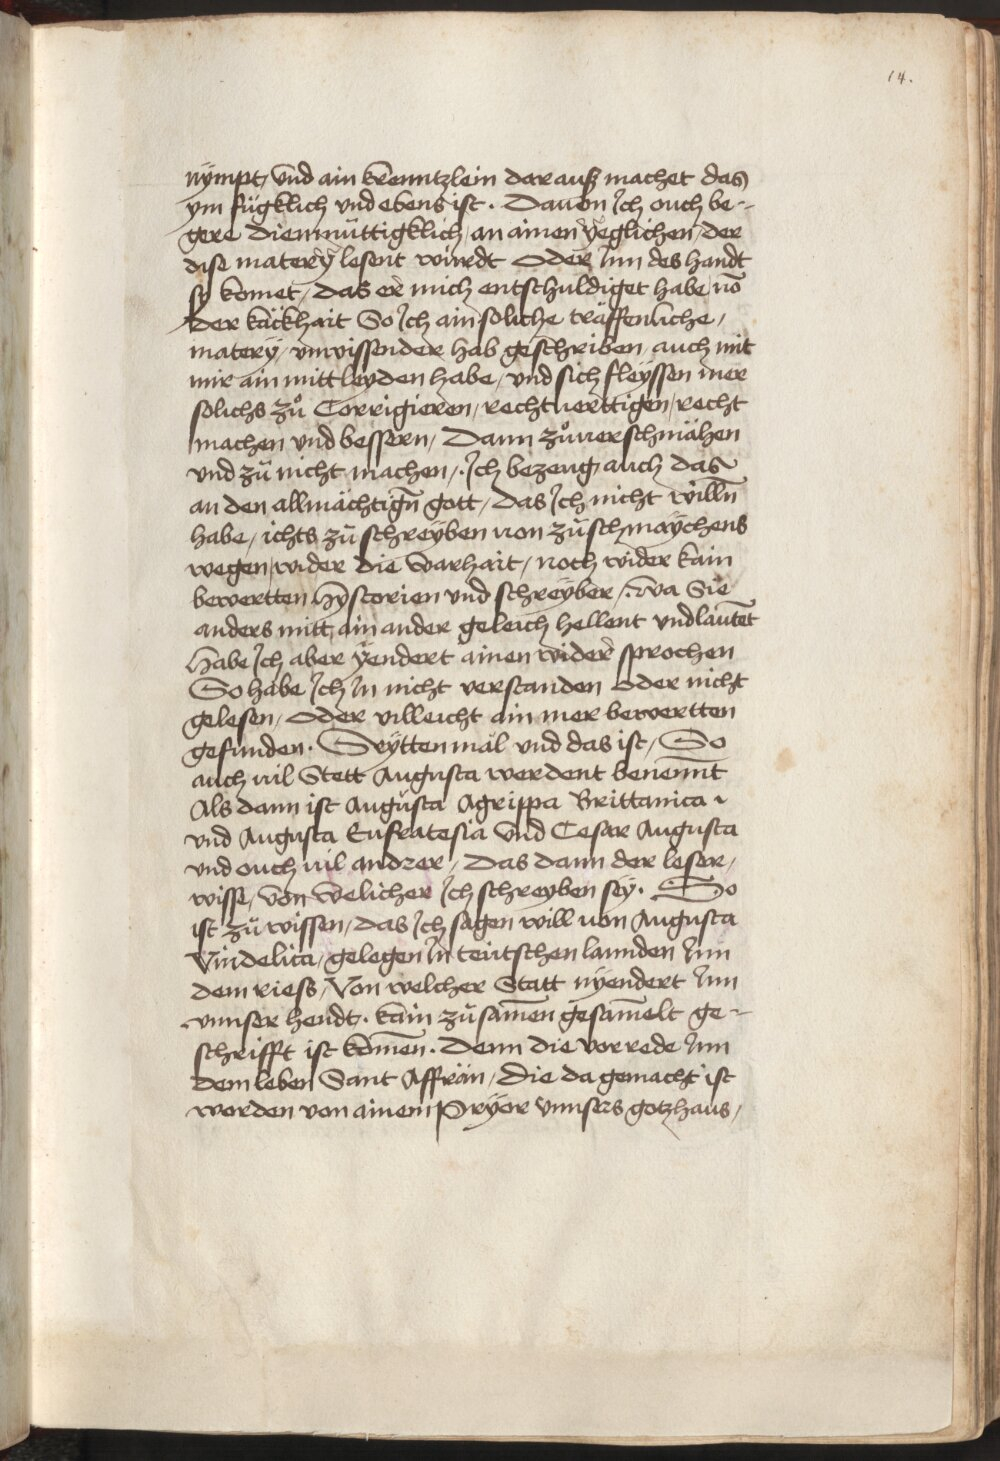 14.
nÿmpt, vnd ain krenntzlein dar auß machet das
ym fügklich vnd ebens ist. Dauon Ich ouch be-
gere diemüttigklich, an ainen ÿeglichen, der
dise materÿ lesent würdt oder Inn des handt
sy komet, das er mich entschuldiget habe uō
der käckhait So Ich ain soliche träffenliche,
materÿ, vnwissender hab geschriben, auch mit
mir ain mittleyden habe, vnd sich fleyssen mer
solichs zů Corrigieren, rechtuerttigen, recht
machen vnd bessern, Dann zůuerschmähen
vnd zů nicht machen, Ich bezeug auch das
an den allmächtign̄ gott, das Ich nicht willn̄
habe, ichts zů schreyben uon zůschmaychens
wegen, wider die warhait, noch wider kain
bewertten Hÿstorien vnd schreyber, wa Sie
anders mitt ain ander geleich hellent vnd lautēt
Habe Ich aber ÿendert ainen wider sprochen
So habe Ich In nicht verstanden oder nicht
gelesen, oder villeicht ain mer bewertten
gefunden. Seÿttenmäl vnd das ist, So
auch uil Stett Augusta werdent benem̄t
Als dann ist Augusta Agrippa Brittanica
vnd Augusta Eufratesia vnd Cesar Augusta
vnd ouch uil andrer, Das dann der leser,
wisse, von welicher Ich schreyben seÿ. So
ist zů wissen, das Ich sagen will uon Augusta
Vindelica, gelegen In teütschen lannden Inn
dem riess, Von welcher Statt nÿendert Inn
vnnser hendt. kain zůsam̄en gesam̄elt ge-
schrifft ist kom̄en. Denn die vorrede Inn
dem leben Sant Affrän, die da gemacht ist
worden von ainem Prÿor vnnsers gotzhaus,